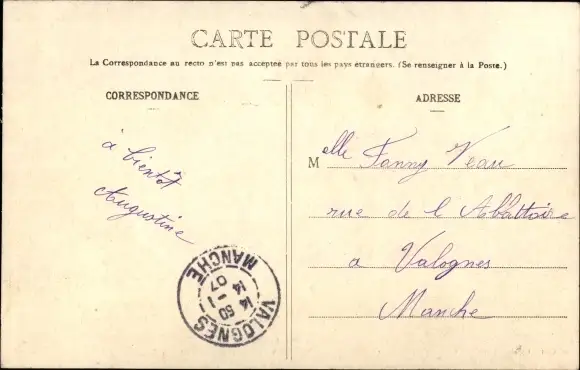 CARTE POSTALE
La Correspondance au recto n'est pas acceptée par tous les pays étrangers. (Se renseigner à la Poste.)
CORRESPONDANCE
à bientôt
Augustine
ADRESSE
Melle Fanny Veau
rue de l Abbattoire
a Valognes
Manche
VALOGNES
MANCHE
14 50
14 - 1
07